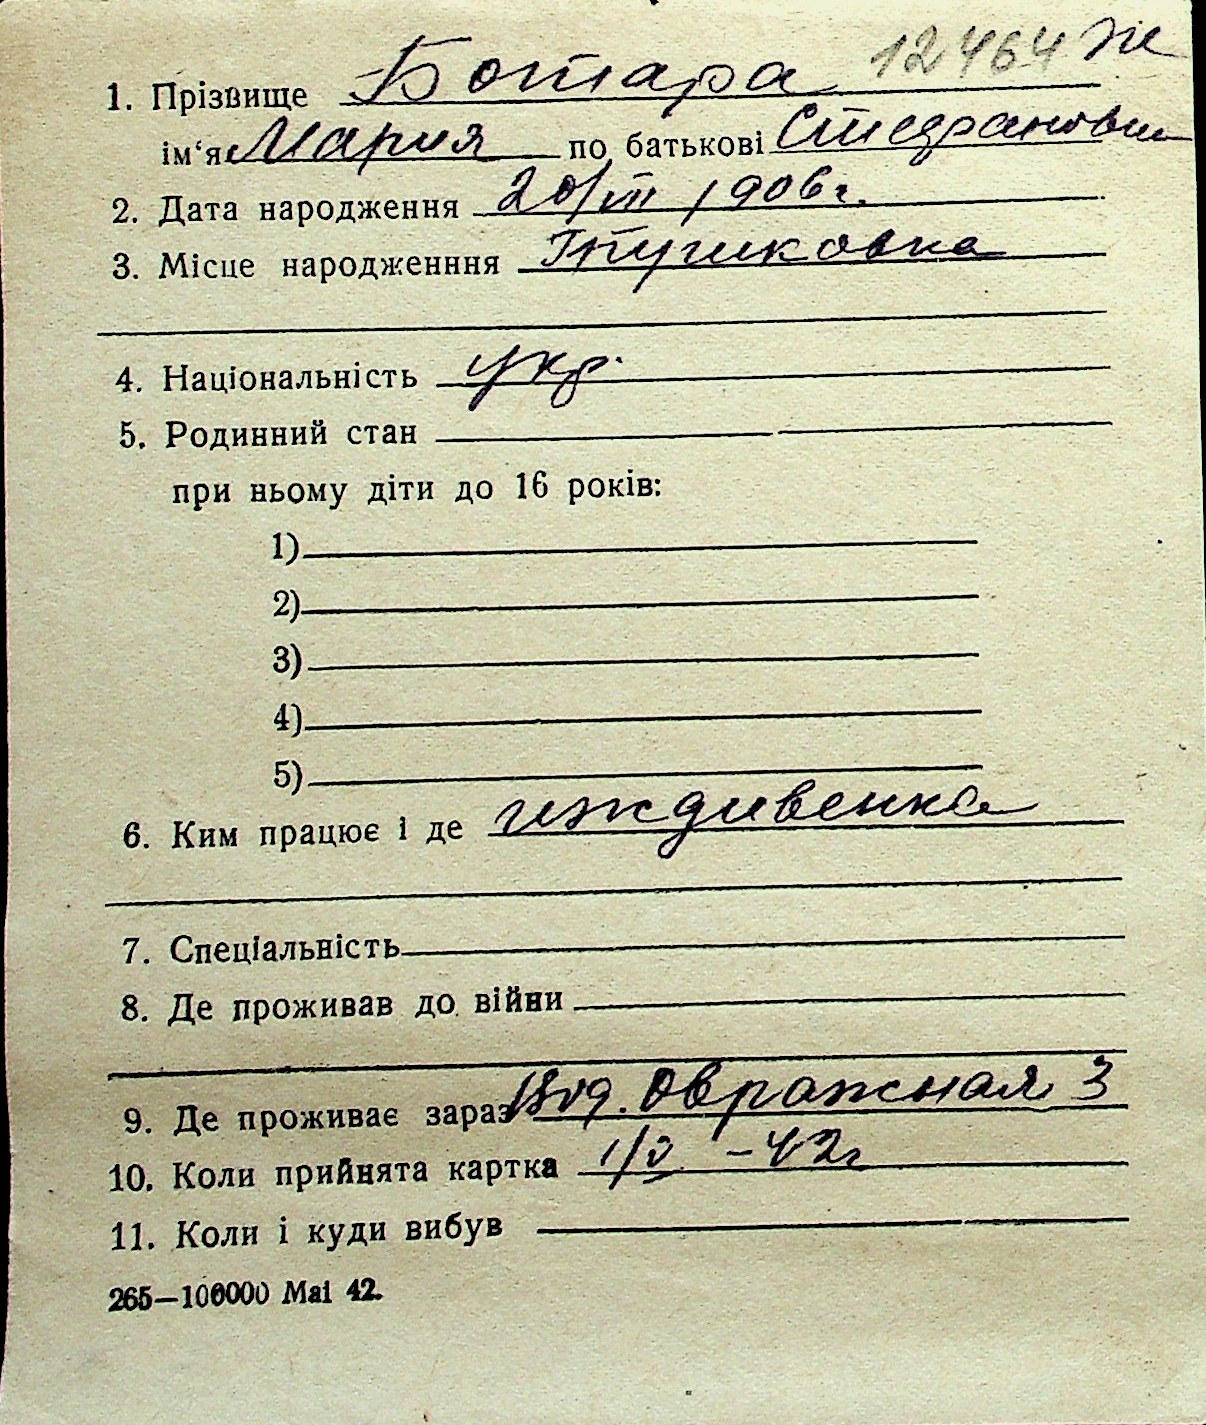 12464 Ж
1. Прізвище Ботара
ім‘я Мария по батькові Стефановн
2. Дата народження 20/VII 1906 г.
3. Місце народженння
4. Національність укр.
5. Родинний стан
при ньому діти до 16 років:
1)
2)
3)
4)
5)
6. Ким працює і де иждивенка
7. Спеціальність
8. Де проживав до війни
9. Де проживає зараз Овражная 3
10. Коли прийнята картка 1/V – 42 г
11. Коли і куди вибув
265—100000 Маі 42.